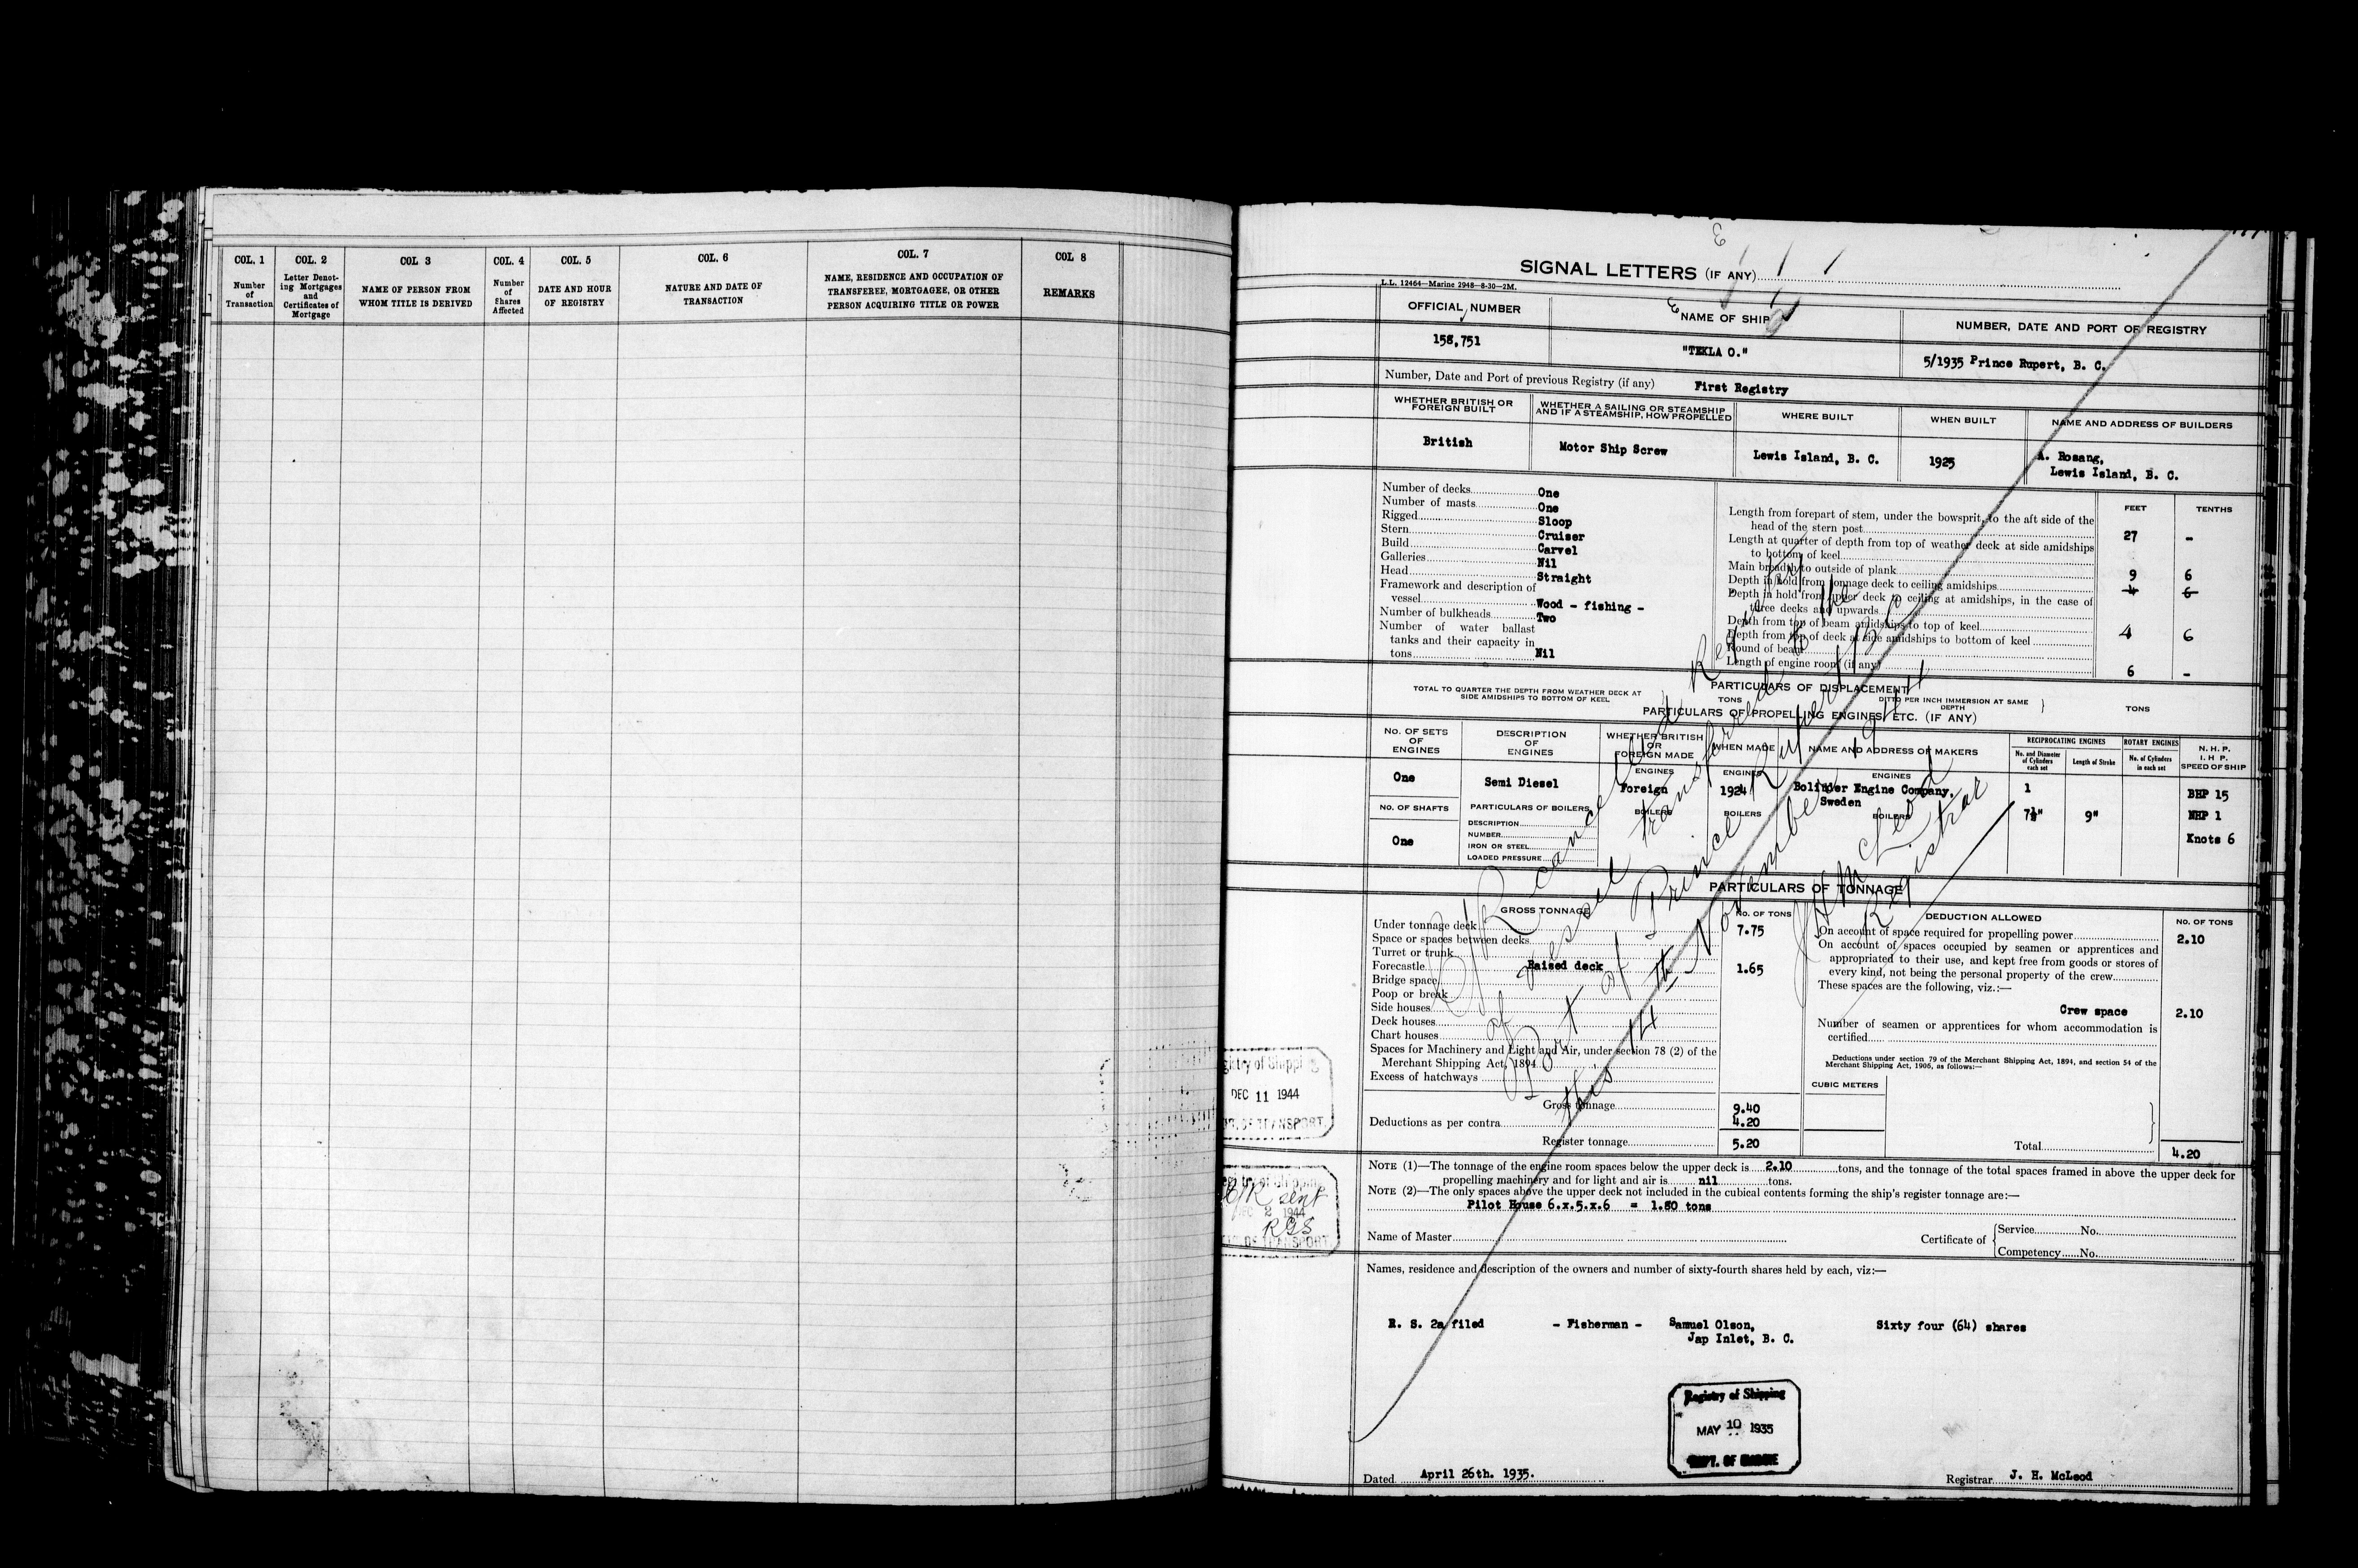 COL. 1
Number
of
Transaction
COL. 2
Letter Denot-
ing Mortgages
and
Certificates of
Mortgage
COL 3
NAME OF PERSON FROM
WHOM TITLE IS DERIVED
COL. 4
Number
of
Shares
Affected
COL. 5
DATE AND HOUR
OF REGISTRY
COL. 6
NATURE AND DATE OF
TRANSACTION
COL. 7
NAME, RESIDENCE AND OCCUPATION OF
TRANSFEREE, MORTGAGEE, OR OTHER
PERSON ACQUIRING TITLE OR POWER
COL 8
REMARKS
SIGNAL LETTERS (IF ANY)
L.L. 12464—Marine 2948—8-30—2M.
OFFICIAL NUMBER
158,751
NAME OF SHIP
"TEKLA O."
NUMBER, DATE AND PORT OF REGISTRY
5/1935 Prince Rupert, B. C.
Number, Date and Port of previous Registry (if any) First Registry
WHETHER BRITISH OR
FOREIGN BUILT
British
WHETHER A SAILING OR STEAMSHIP
AND IF A STEAMSHIP, HOW PROPELLED
Motor Ship Screw
WHERE BUILT
Lewis Island, B. C.
WHEN BUILT
1925
NAME AND ADDRESS OF BUILDERS
A. Rosang,
Lewis Island, B. C.
Number of decks One
Number of masts One
Rigged Sloop
Stern Cruiser
Build Carvel
Galleries Nil
Head Straight
Framework and description of
vessel Wood - fishing -
Number of bulkheads Two
Number of water ballast
tanks and their capacity in
tons Nil
FEET TENTHS
Length from forepart of stem, under the bowsprit, to the aft side of the
head of the stern post 27 -
Length at quarter of depth from top of weather deck at side amidships
to bottom of keel
Main breadth to outside of plank 9 6
Depth in hold from tonnage deck to ceiling amidships 4 6
Depth in hold from upper deck to ceiling at amidships, in the case of
three decks and upwards
Depth from top of beam amidships to top of keel
Depth from top of deck at side amidships to bottom of keel 4 6
Round of beam
Length of engine room (if any) 6 -
PARTICULARS OF DISPLACEMENT
TOTAL TO QUARTER THE DEPTH FROM WEATHER DECK AT
SIDE AMIDSHIPS TO BOTTOM OF KEEL
TONS
DITTO PER INCH IMMERSION AT SAME
DEPTH
TONS
PARTICULARS OF PROPELLING ENGINES, ETC. (IF ANY)
NO. OF SETS
OF
ENGINES
One
NO. OF SHAFTS
One
DESCRIPTION
OF
ENGINES
Semi Diesel
PARTICULARS OF BOILERS
DESCRIPTION
NUMBER
IRON OR STEEL
LOADED PRESSURE
WHETHER BRITISH
OR
FOREIGN MADE
ENGINES
Foreign
BOILERS
WHEN MADE
ENGINES
1924
BOILERS
NAME AND ADDRESS OF MAKERS
ENGINES
Bolinder Engine Company,
Sweden
BOILERS
RECIPROCATING ENGINES
No. and Diameter
of Cylinders
each set
1
7½"
Length of Stroke
9"
ROTARY ENGINES
No. of Cylinders
in each set
N. H. P.
I. H P.
SPEED OF SHIP
BHP 15
NHP 1
Knots 6
PARTICULARS OF TONNAGE
GROSS TONNAGE
NO. OF TONS
Under tonnage deck 7.75
Space or spaces between decks
Turret or trunk
Forecastle Raised deck 1.65
Bridge space
Poop or break
Side houses
Deck houses
Chart houses
Spaces for Machinery and Light and Air, under section 78 (2) of the
Merchant Shipping Act, 1894
Excess of hatchways
Gross tonnage 9.40
Deductions as per contra 4.20
Register tonnage 5.20
DEDUCTION ALLOWED
NO. OF TONS
On account of space required for propelling power 2.10
On account of spaces occupied by seamen or apprentices and
appropriated to their use, and kept free from goods or stores of
every kind, not being the personal property of the crew
These spaces are the following, viz.:—
Crew space 2.10
Number of seamen or apprentices for whom accommodation is
certified
Deductions under section 79 of the Merchant Shipping Act, 1894, and section 54 of the
Merchant Shipping Act, 1906, as follows:—
CUBIC METERS
Total 4.20
C/R cancelled Register
of vessel transferred to the
Port of Prince Rupert B C
this 14th November 1944
J H McLeod
Registrar
Registry of Shipping
DEC 11 1944
DEPT. OF TRANSPORT
Registry of Shipping
C/R sent
DEC 2 1944
RGS
DEPT. OF TRANSPORT
NOTE (1)—The tonnage of the engine room spaces below the upper deck is 2.10 tons, and the tonnage of the total spaces framed in above the upper deck for
propelling machinery and for light and air is nil tons.
NOTE (2)—The only spaces above the upper deck not included in the cubical contents forming the ship's register tonnage are:—
Pilot House 6.x.5.x.6 = 1.80 tons
Name of Master
Certificate of
Service No.
Competency No.
Names, residence and description of the owners and number of sixty-fourth shares held by each, viz:—
R. S. 2a filed - Fisherman - Samuel Olson, Sixty four (64) shares
Jap Inlet, B. C.
Registry of Shipping
MAY 10 1935
DEPT. OF MARINE
Dated April 26th. 1935.
Registrar J. H. McLeod